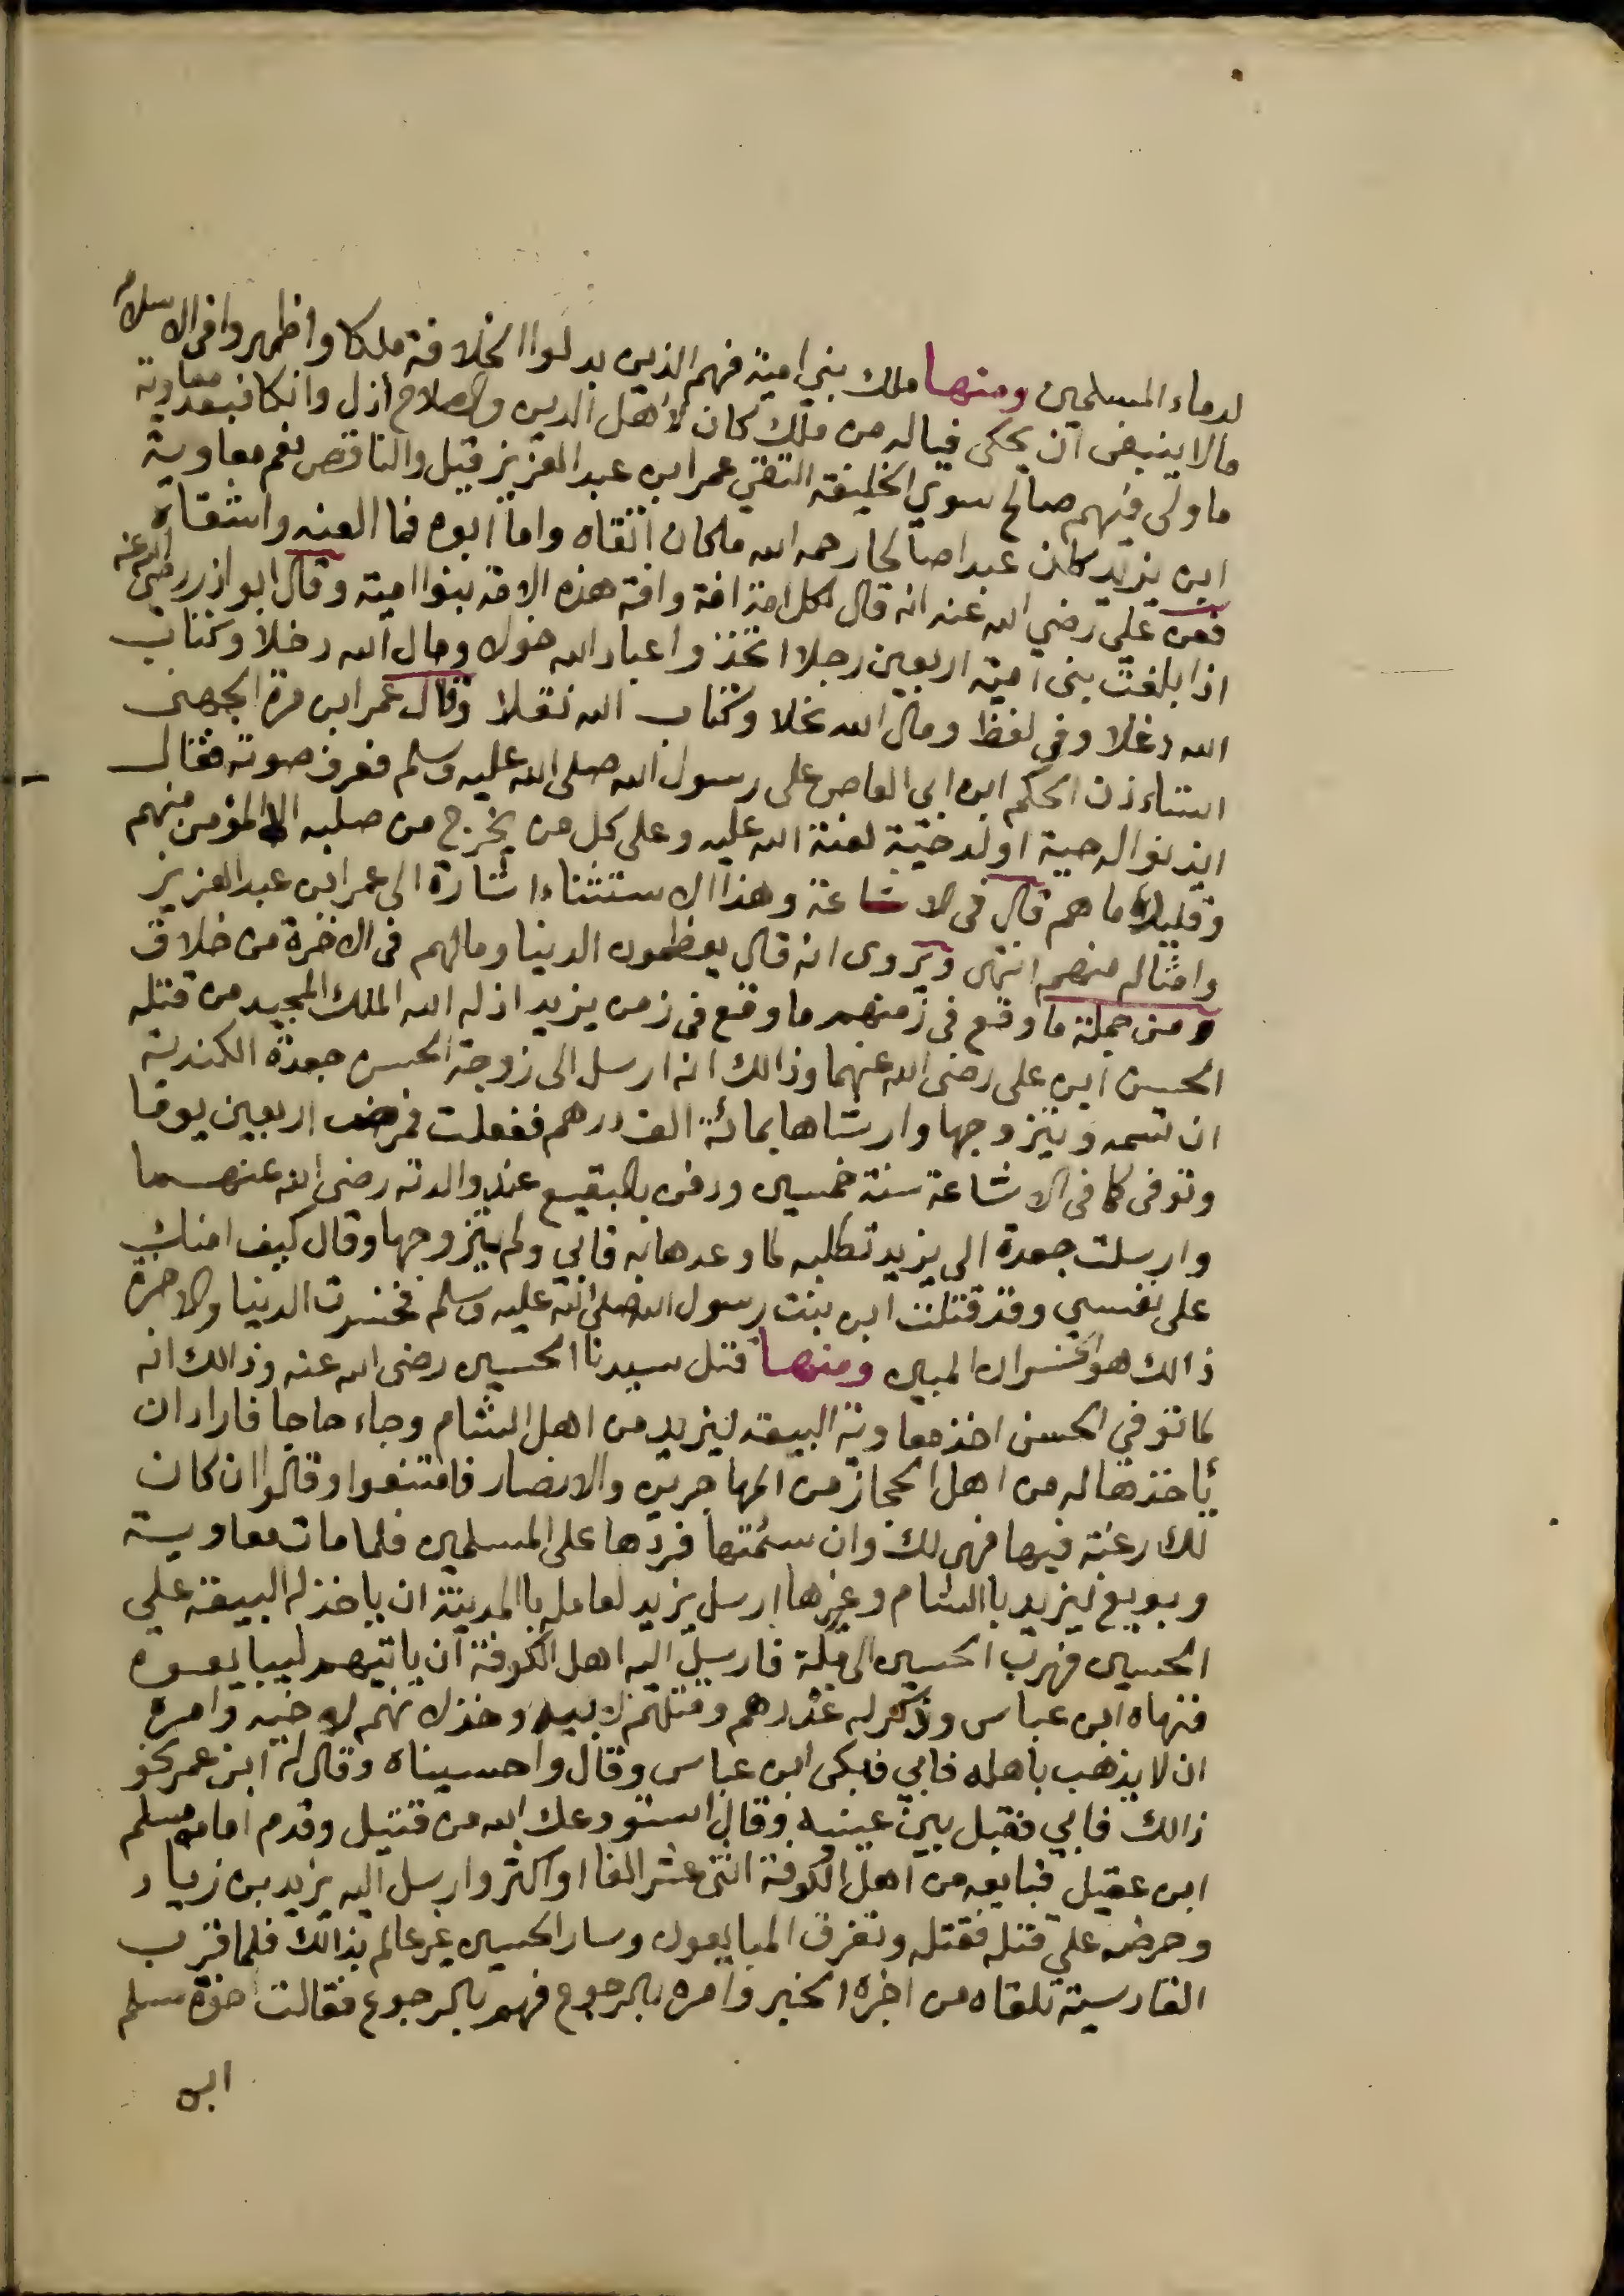 لدماء المسلمين ومنها ملك بني امية فهم الذين بدلوا الخلافة ملكا واظهروا في الاسلام
مالا ينبغى ان يحكى فياله من ملك كان لاهل الدين والصلاح أذل وانكا فبعد معاوية
ما ولى فيهم صالح سوى الخليفة التقي عمر ابن عبد العزيز قيل والناقص نعم معاوية
ابن يزيد كان عبدا صالحا رحمه الله ما كان اتقاه واما ابوه فما العنه واشقاه
فعن على رضي الله عنه انه قال لكل امة افة وافة هذه الامة بنوا امية وقال ابو اذر رضى الله عنه
اذا بلغت بنى امية اربعين رجلا اتخذوا عباد الله خولا ومال الله دخلا وكتاب
الله دغلا وفي لفظ ومال الله نحلا وكتاب الله نقلا وقال عمر ابن مرة الجهنى
استاءذن الحكم ابن ابى العاص على رسول الله صلى الله عليه وسلم فعرف صوته فقال
ايذنوا له حية او لد حية لعنة الله عليه وعلى كل من يخرج من صلبه الا المؤمن منهم
وقليلا ما هم قال فى الاشاعة وهذا الاستثناء اشارة الى عمر ابن عبد العزيز
وامثاله منهم انتهى ويروى انه قال يعظمون الدنيا ومالهم فى الاخرة من خلاق
ومن جملة ما وقع فى زمنهم ما وقع فى زمن يزيد اذله الله الملك المجيد من قتله
الحسن ابن على رضى الله عنهما وذالك انه ارسل الى زوجة الحسن جعدة الكندية
ان تسمه ويتزوجها وارشاها بمائة الف درهم ففعلت فمرض اربعين يوما
وتوفى كما فى الاشاعة سنة خمسين ودفن بالبقيع عند والدته رضى الله عنهما
وارسلت جعدة الى يزيد تطلبه لما وعدها به فابي ولم يتزوجها وقال كيف امنك
على نفسي وقد قتلت ابن بنت رسول الله صلى الله عليه وسلم فخسرت الدنيا والاخرة
ذالك هو الخسران المبين ومنها قتل سيدنا الحسين رضى الله عنه وذالك انه
لما توفي الحسن اخذ معاوية البيعة ليزيد من اهل الشام وجاء حاجا فاراد ان
يأخذها له من اهل الحجاز من المهاجرين والانصار فامتنعوا وقالوا ان كان
لك رغبة فيها فهى لك وان سئمتها فردها على المسلمين فلما مات معاوية
وبويع ليزيد باالشام وغيرها ارسل يزيد لعامله باالمدينة ان ياخذ له البيعة على
الحسين فهرب الحسين الى مكة فارسل اليه اهل الكوفة ان ياتيهم ليبايعوه
فنهاه ابن عباس وذكر له غدرهم وقتلهم لابيه وخذلانهم لاخيه وامره
ان لا يذهب باهله فابي فبكى ابن عباس وقال واحسيناه وقال له ابن عمر نحو
ذالك فابي فقبل بين عينيه وقال استودعك الله من قتيل وقدم امامه مسلم
ابن عقيل فبايعه من اهل الكوفة اثنى عشر الفا او اكثر وارسل اليه يزيد بن زياد
وحرضه على قتله فقتله وتفرق المبايعون وسار الحسين غير عالم بذالك فلما قرب
القادسية تلقاه من اخره الخبر وامره بالرجوع فهم بالرجوع فقالت اخوة مسلم
ابن